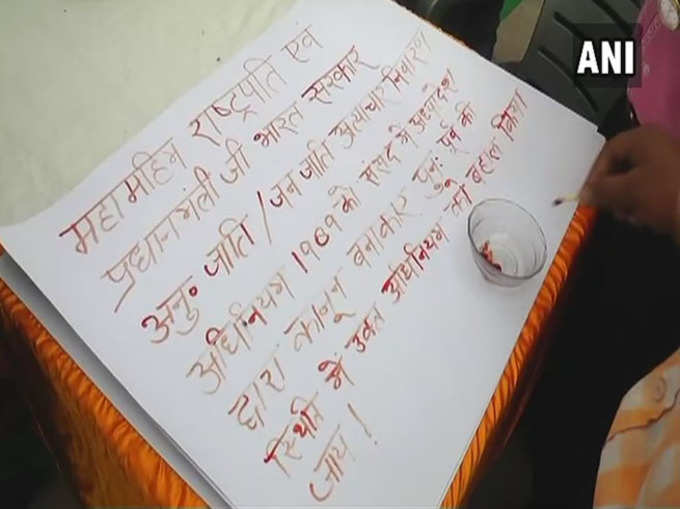 ANI
महामहिम राष्ट्रपति एवं
प्रधानमंत्री जी भारत सरकार
अनु॰ जाति / जन जाति अत्याचार निवारण
अधिनियम १९८९ को संसद में अध्यादेश
द्वारा कानून बनाकर पुनः पूर्व की
स्थिति में उक्त अधिनियम को बहाल किया
जाय !